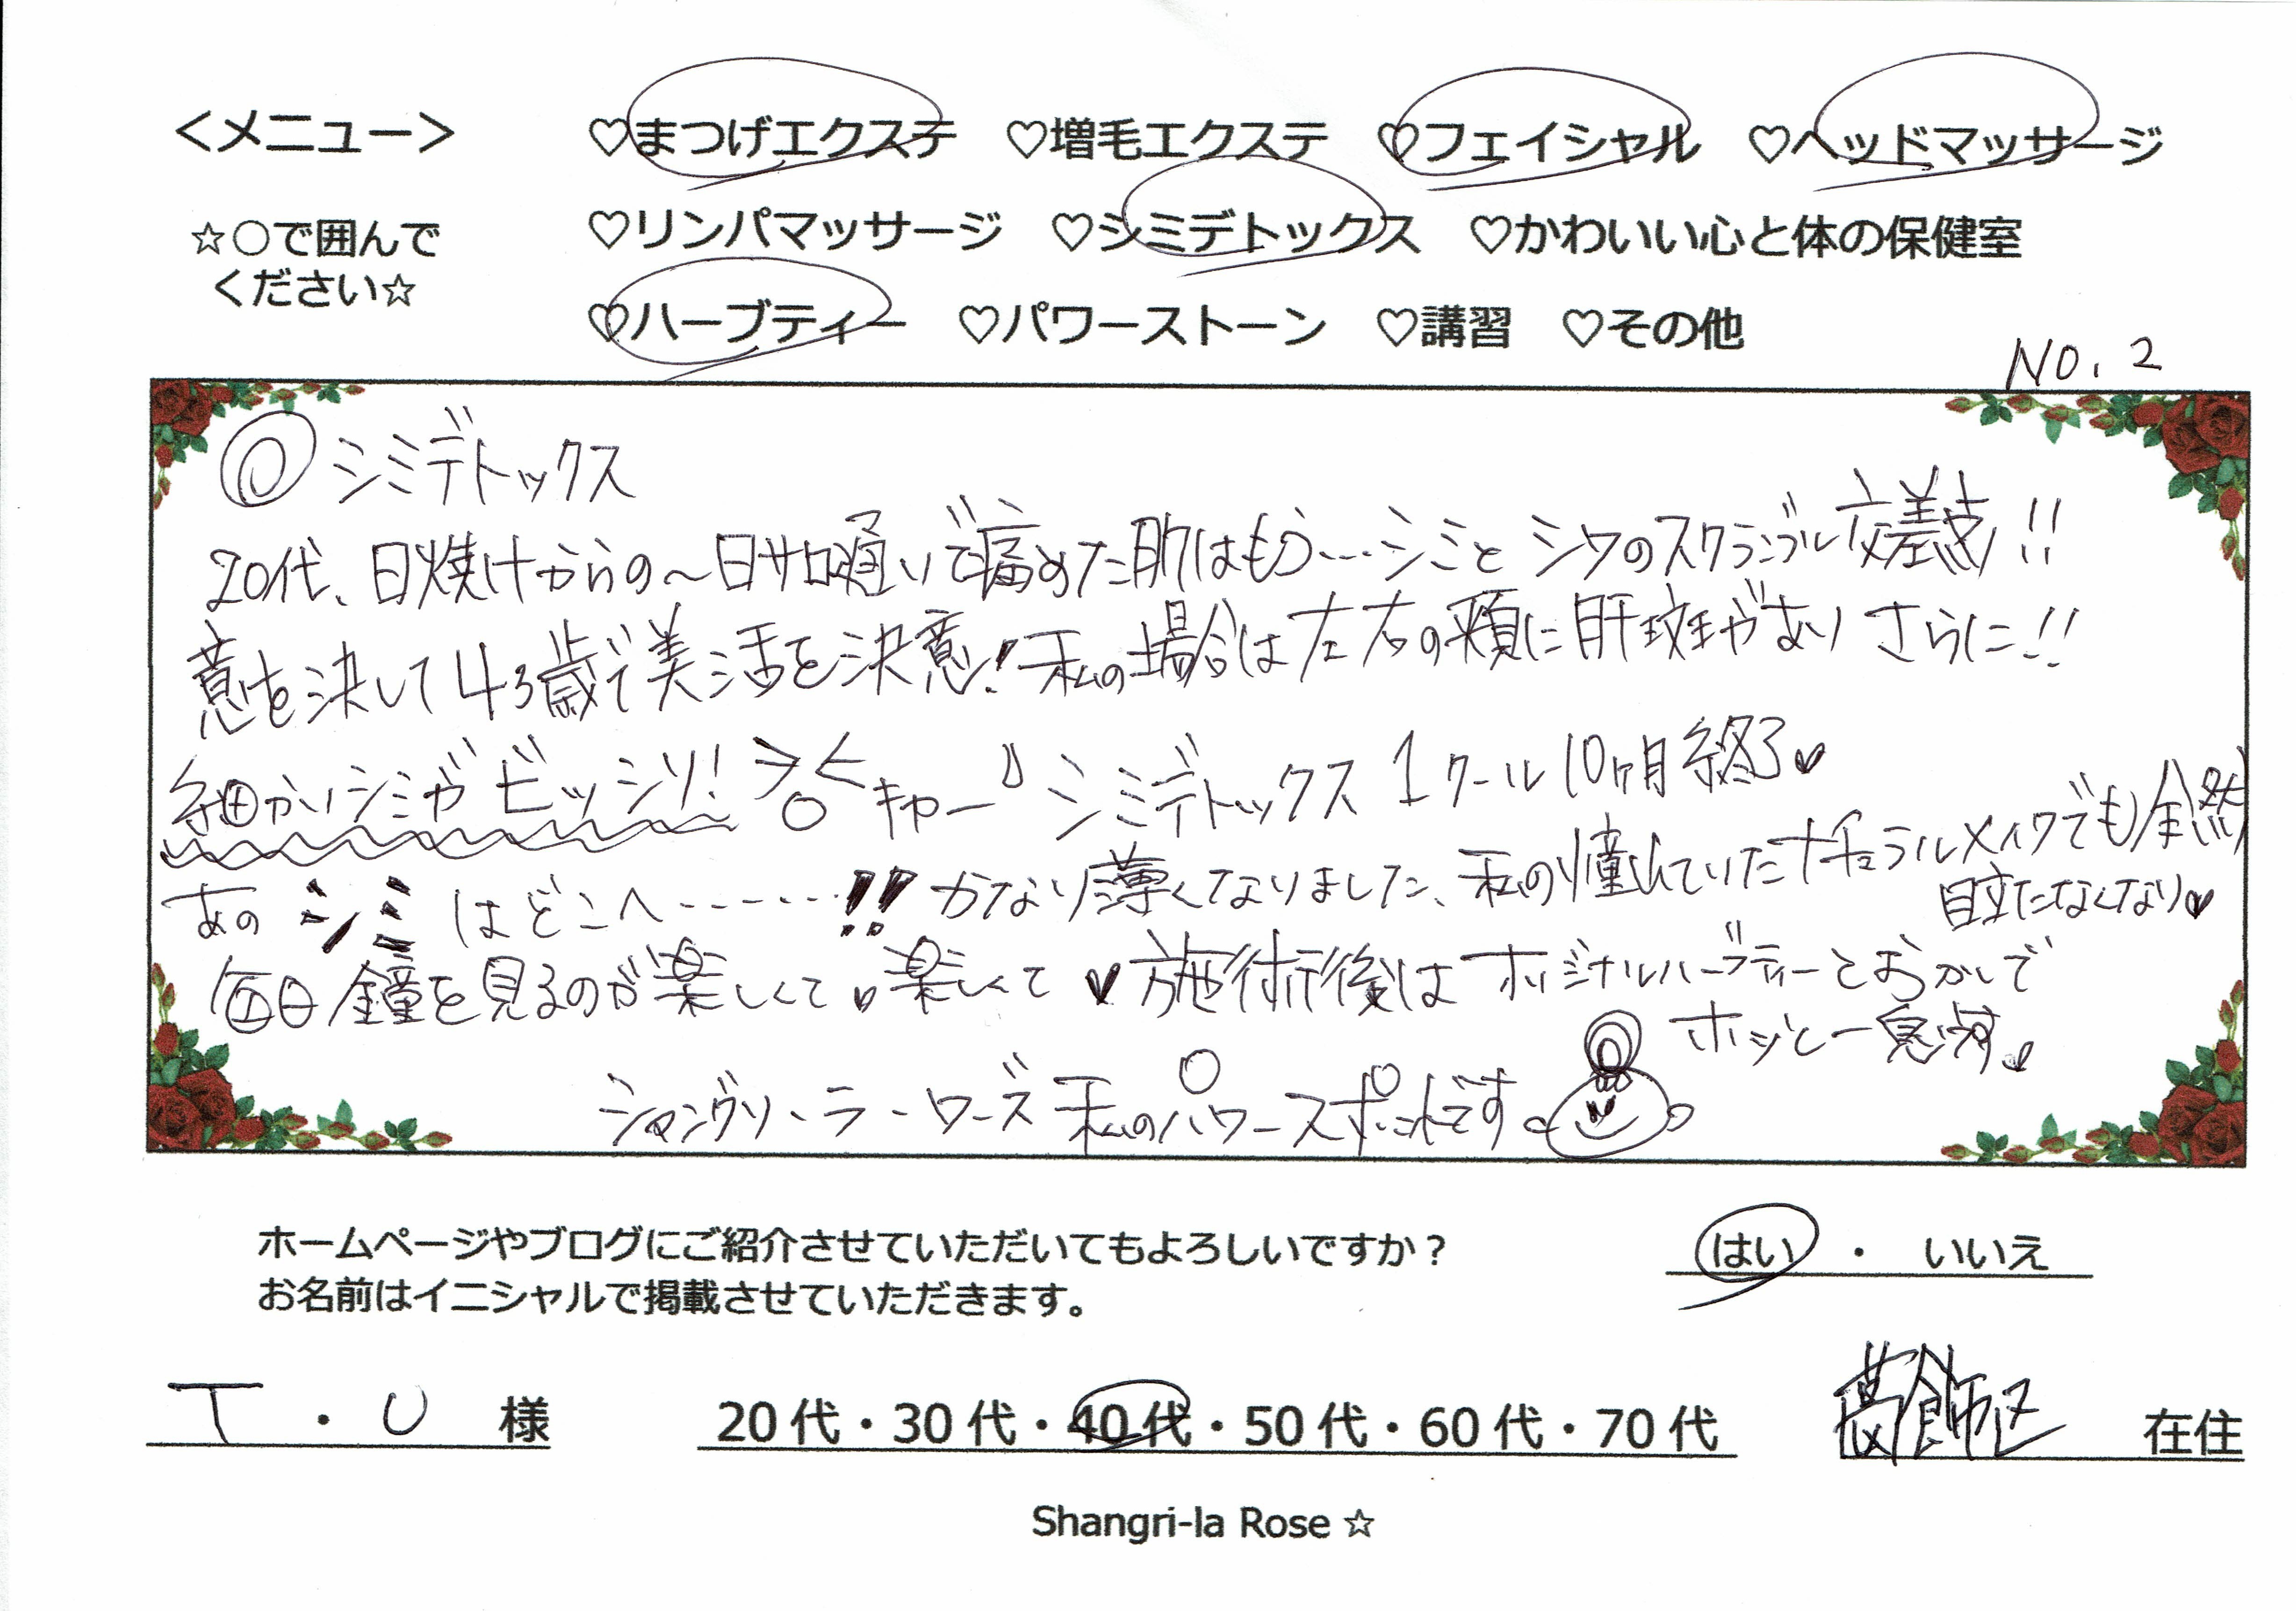 ＜メニュー＞ ♡まつげエクステ ♡増毛エクステ ♡フェイシャル ♡ヘッドマッサージ
☆○で囲んで ♡リンパマッサージ ♡シミデトックス ♡かわいい心と体の保健室
ください☆
♡ハーブティー ♡パワーストーン ♡講習 ♡その他
NO. 2
◎シミデトックス
20代、日焼けからの〜日サロ通いで痛めた肌はもう…シミとシワのスクランブル交差点!!
意を決して43歳で美活を決意! 私の場合は左右の頬に肝斑がありさらに!!
細かいシミがビッシリ! キャー シミデトックス 1クール10ヶ月終了♥
あのシミはどこへ……!! かなり薄くなりました、私の憧れていたナチュラルメイクでも全然
目立たなくなり♥
毎日鐘を見るのが楽しくて♥楽しくて♥施術後はオリジナルハーブティーとおかしで
ホッと一息です♥
シャングリ・ラ・ローズ 私のパワースポットです
ホームページやブログにご紹介させていただいてもよろしいですか？ はい ・ いいえ
お名前はイニシャルで掲載させていただきます。
T ・ U 様 20代・30代・40代・50代・60代・70代 葛飾区 在住
Shangri-la Rose ☆